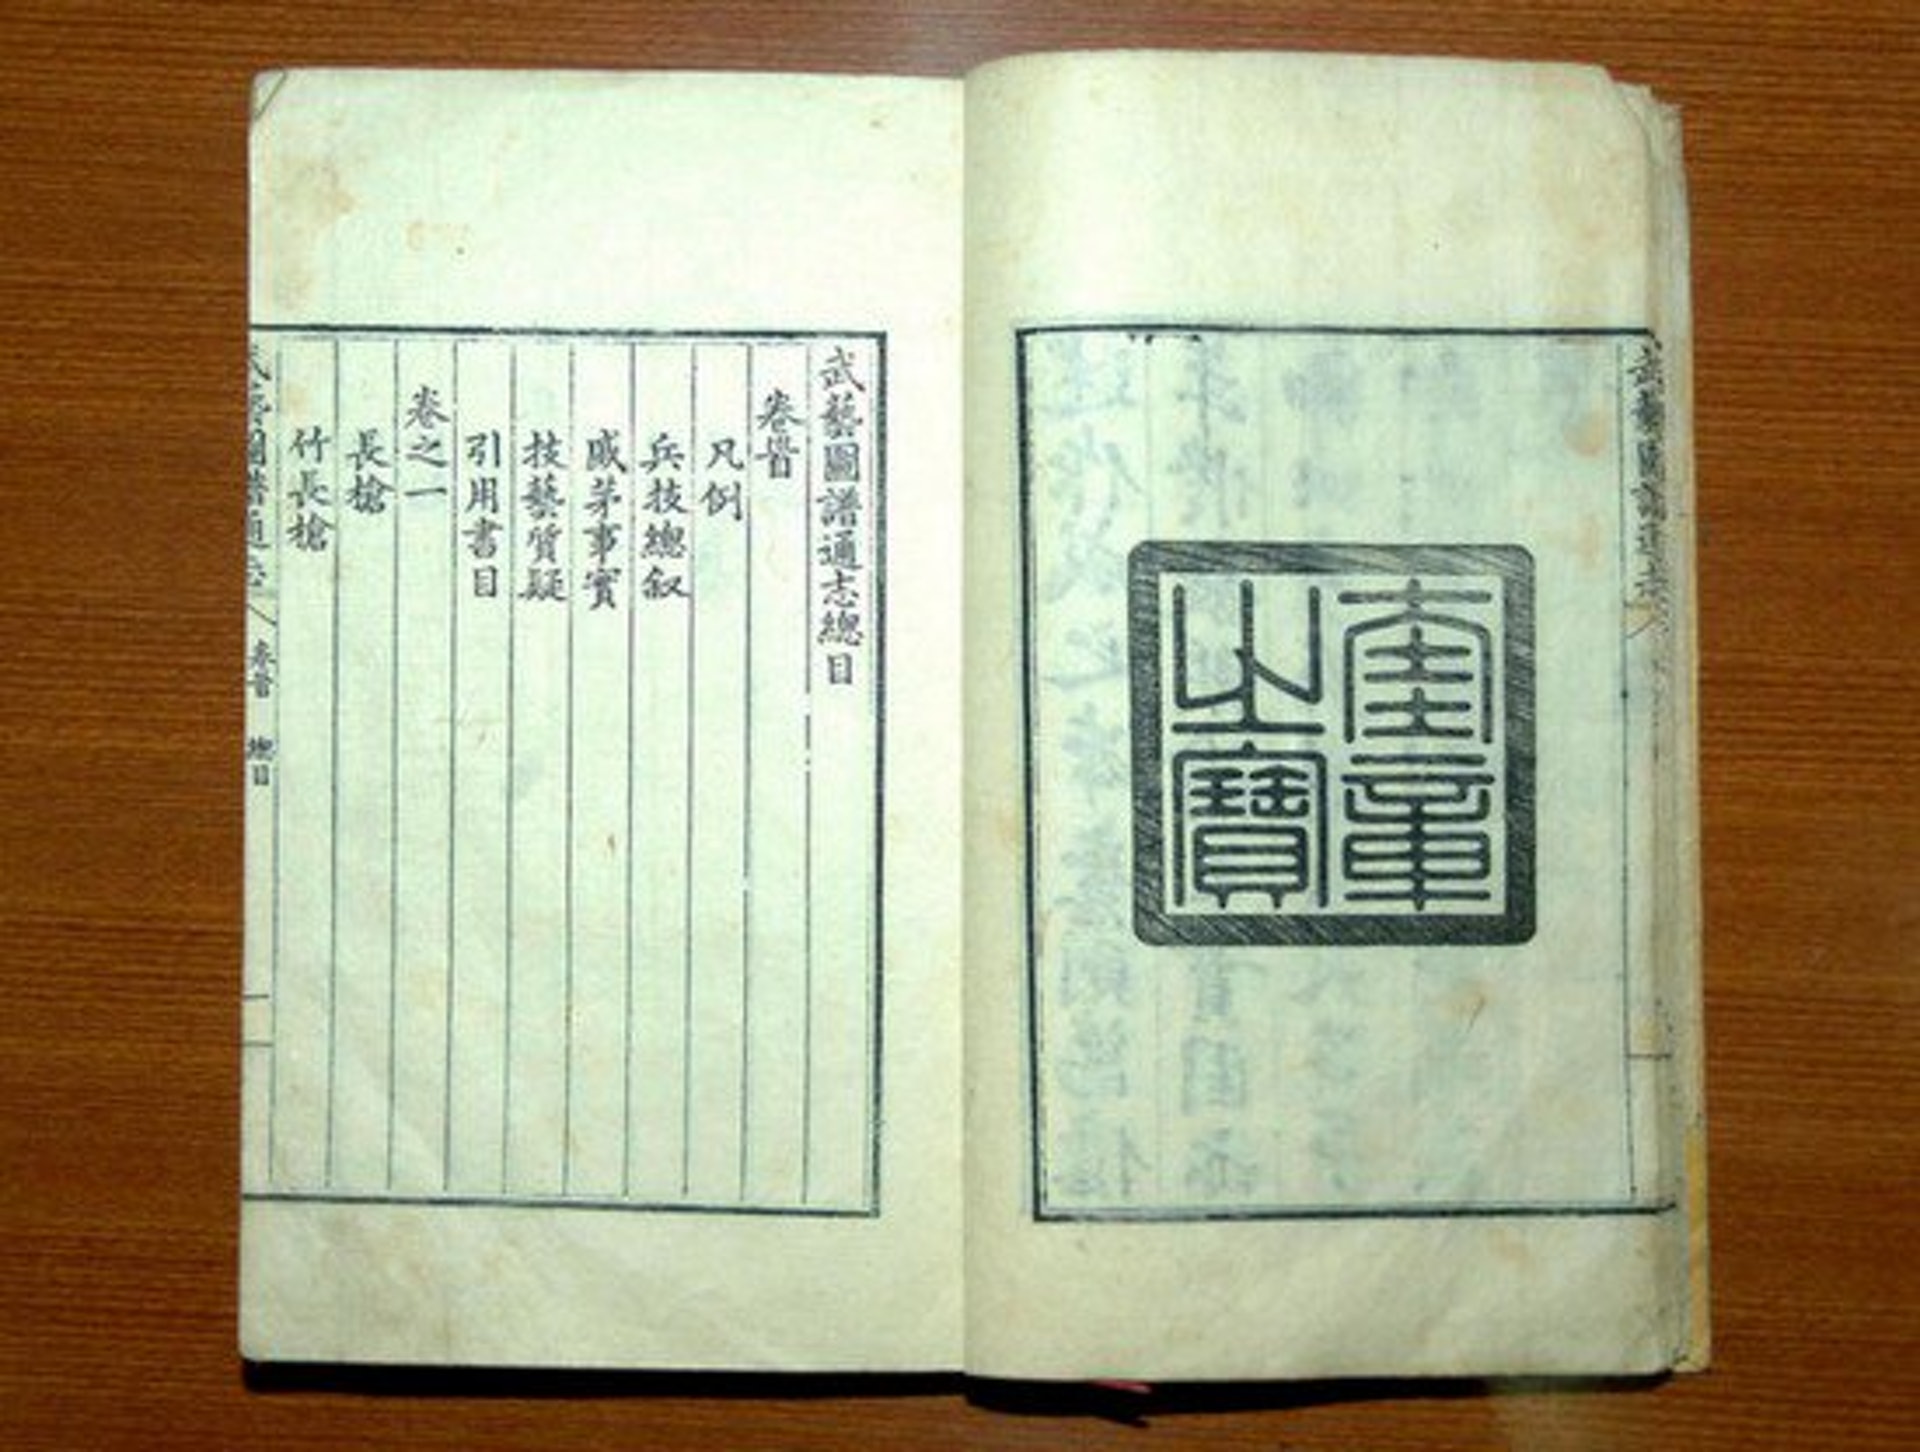 武藝圖譜通志
奎章
之寶
武藝圖譜通志總目
卷首
凡例
兵技總叙
戚茅事實
技藝質疑
引用書目
卷之一
長槍
竹長槍
武藝圖譜通志 卷首 總目